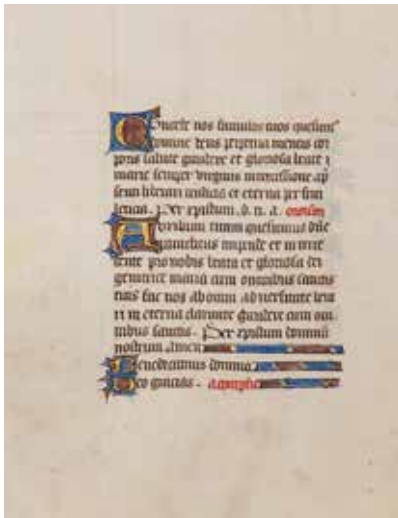 nos famulos tuos
domine deus perpetua mentis cor
poris salute gaudere et gloriosa beate
marie semper virginis intercessione a p
senti liberari tristicia et eterna per frui
leticia. Per xpistum. d. n. a.
tuum quesumus dne
impende et in terce
dente pro nobis beata et gloriosa dei
genitrice maria cum omnibus sanctis
tuis fac nos ab omni adversitate
in eterna gaudere cum om
nibus sanctis. Per xpistum dominum
nostrum. Amen
Benedicamus domino
Deo gracias. a complie